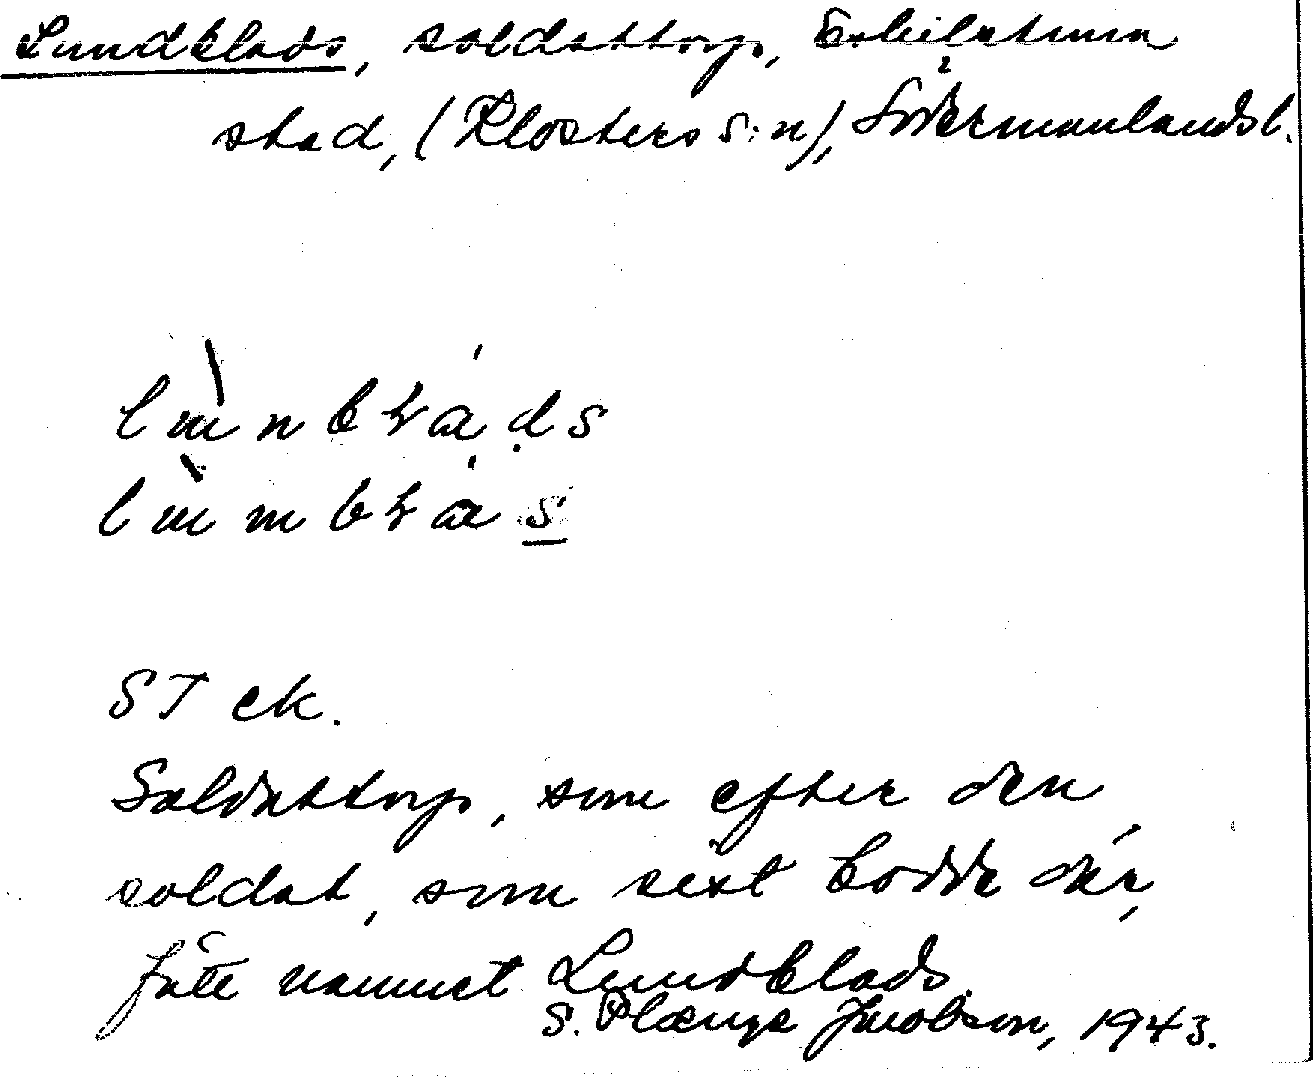 Lundblads, soldattorp, Eskilstuna
stad, (Klosters s:n), Södermanlands l.
ST ek.
Soldattorp, som efter den
soldat, som sist bodde där,
fått namnet Lundblads.
S. Plænge Jacobson, 1943.